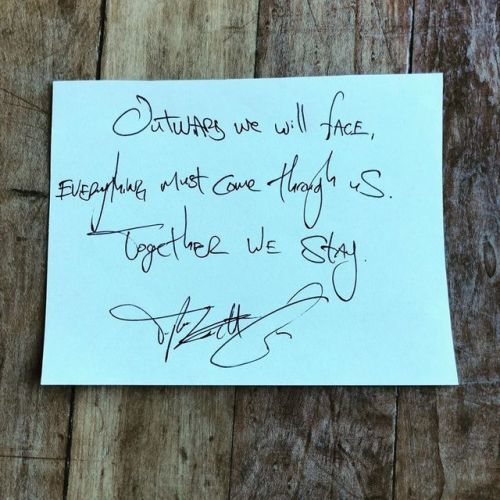 Outwards we will face,
Everything must come through us.
Together we stay.